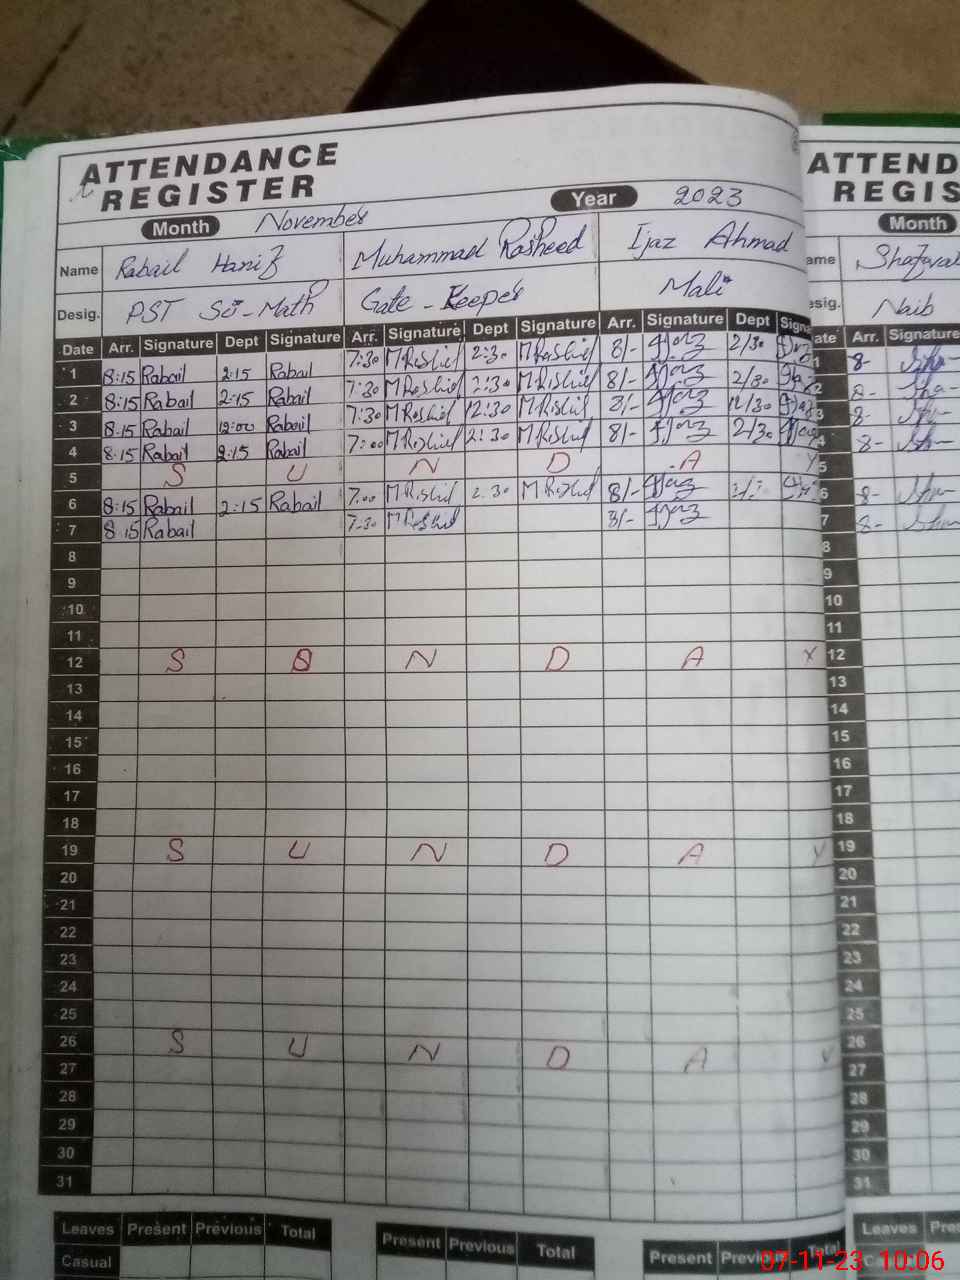 ATTENDANCE ATTEND
REGISTER REGIS
Month November Year 2023 Month
Name Rabail Hanif Muhammad Rasheed Ijaz Ahmad ame
Desig. PST Sci-Math Gate-Keeper Mali esig. Naib
Date Arr. Signature Dept Signature Arr. Signature Dept Signature Arr. Signature Dept Signa ate Arr. Signature
1 8:15 Rabail 2:15 Rabail 7:30 M Rashid 2:30 M Rashid 8/- 2/30 1 8-
2 8:15 Rabail 2:15 Rabail 7:30 M Rashid 2:30 M Rashid 8/- 2/30 2 8-
3 8:15 Rabail 12:00 Rabail 7:30 M Rashid 12:30 M Rashid 8/- 12/30 3 8-
4 8:15 Rabail 2:15 Rabail 7:00 M Rashid 2:30 M Rashid 8/- 2/30 4 8-
5 S U N D A Y 5
6 8:15 Rabail 2:15 Rabail 7:00 M Rashid 2:30 M Rashid 8/- 6 8-
7 8:15 Rabail 7:30 M Rashid 8/- 7 8-
8 8
9 9
10 10
11 11
12 S U N D A Y 12
13 13
14 14
15 15
16 16
17 17
18 18
19 S U N D A Y 19
20 20
21 21
22 22
23 23
24 24
25 25
26 S U N D A Y 26
27 27
28 28
29 29
30 30
31 31
Leaves Present Previous Total Present Previous Total Present Previous Total Leaves Pre
Casual
07-11-23 10:06